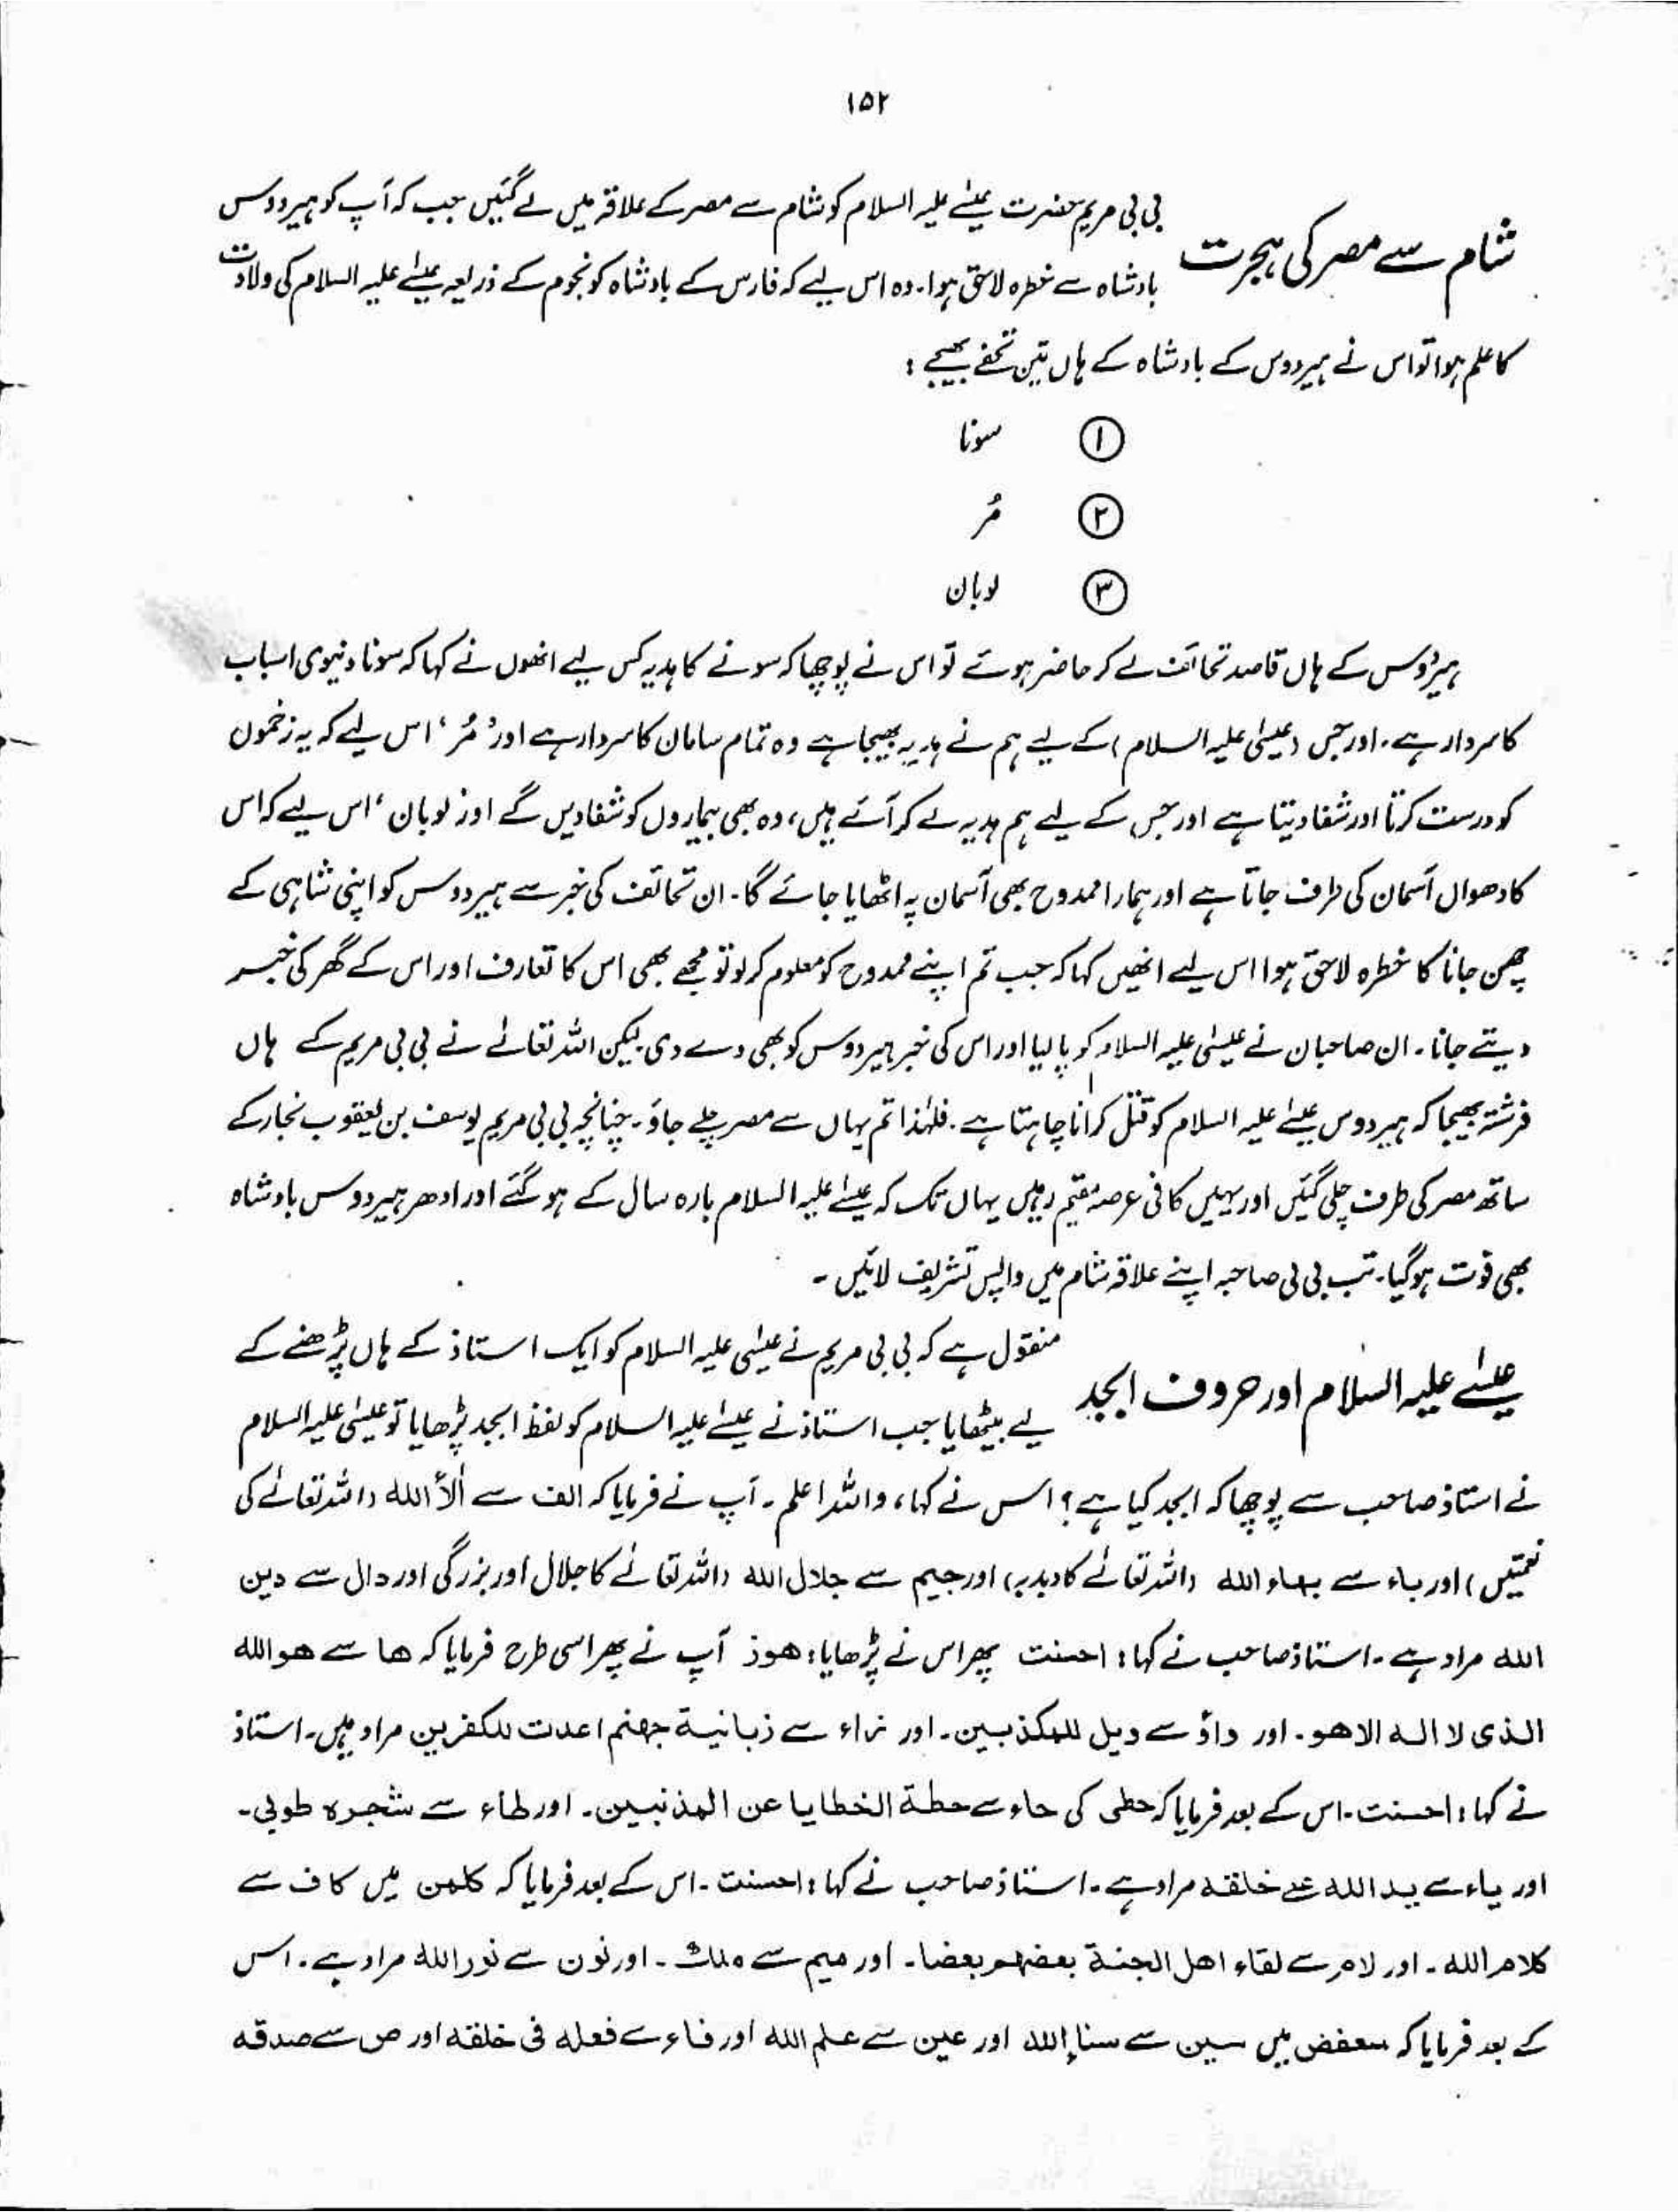 ۱۵۲
شام سے مصر کی ہجرت
بی بی مریم حضرت عیسےٰ علیہ السلام کو شام سے مصر کے علاقہ میں لے گئیں جب کہ آپ کو ہیرودوس
بادشاہ سے خطرہ لاحق ہوا۔ وہ اس لیے کہ فارس کے بادشاہ کو نجوم کے ذریعہ عیسےٰ علیہ السلام کی ولادت
کا علم ہوا تو اس نے ہیردوس کے بادشاہ کے ہاں تین تحفے بھیجے :
① سونا
② مُر
③ لوبان
ہیرُدوس کے ہاں قاصد تحائف لے کر حاضر ہوئے تو اس نے پوچھا کہ سونے کا ہدیہ کس لیے انھوں نے کہا کہ سونا دنیوی اسباب
کا سردار ہے۔ اور جس (عیسٰی علیہ السلام) کے لیے ہم نے ہدیہ بھیجا ہے وہ تمام سامان کا سردار ہے اور ’مُر‘ اس لیے کہ یہ زخموں
کو درست کرتا اور شفا دیتا ہے اور جس کے لیے ہم ہدیہ لے کر آئے ہیں، وہ بھی بیماروں کو شفا دیں گے اور ’لوبان‘ اس لیے کہ اس
کا دھواں آسمان کی طرف جاتا ہے اور ہمارا ممدوح بھی آسمان پہ اٹھایا جائے گا۔ ان تحائف کی خبر سے ہیردوس کو اپنی شاہی کے
چھن جانا کا خطرہ لاحق ہوا اس لیے انھیں کہا کہ جب تم اپنے ممدوح کو معلوم کر لو تو مجھے بھی اس کا تعارف اور اس کے گھر کی خبر
دیتے جانا۔ ان صاحبان نے عیسٰی علیہ السلام کو پا لیا اور اس کی خبر ہیردوس کو بھی دے دی لیکن اللہ تعالےٰ نے بی بی مریم کے ہاں
فرشتہ بھیجا کہ ہیردوس عیسےٰ علیہ السلام کو قتل کرانا چاہتا ہے۔ فلہٰذا تم یہاں سے مصر چلے جاؤ۔ چنانچہ بی بی مریم یوسف بن یعقوب نجار کے
ساتھ مصر کی طرف چلی گئیں اور یہیں کافی عرصہ مقیم رہیں یہاں تک کہ عیسےٰ علیہ السلام بارہ سال کے ہو گئے اور ادھر ہیردوس بادشاہ
بھی فوت ہو گیا۔ تب بی بی صاحبہ اپنے علاقہ شام میں واپس تشریف لائیں۔
عیسےٰ علیہ السلام اور حروف ابجد
منقول ہے کہ بی بی مریم نے عیسٰی علیہ السلام کو ایک استاذ کے ہاں پڑھنے کے
لیے بیٹھایا جب استاذ نے عیسےٰ علیہ السلام کو لفظ ابجد پڑھایا تو عیسٰی علیہ السلام
نے استاذ صاحب سے پوچھا کہ ابجد کیا ہے؟ اس نے کہا، واللہ اعلم۔ آپ نے فرمایا کہ الف سے اٰلاۤء اللہ (اللہ تعالےٰ کی
نعمتیں) اور باء سے بہاء اللہ (اللہ تعالےٰ کا دبدبہ) اور جیم سے جلال اللہ (اللہ تعالےٰ کا جلال اور بزرگی اور دال سے دین
اللہ مراد ہے۔ استاذ صاحب نے کہا: احسنت پھر اس نے پڑھایا: ھوز آپ نے پھر اسی طرح فرمایا کہ ھا سے ھو اللہ
الذی لا الہ الا ھو۔ اور واؤ سے ویل للمکذبین۔ اور زاء سے زبانیۃ جھنم اعدت للکفرین مراد ہیں۔ استاذ
نے کہا: احسنت۔ اس کے بعد فرمایا کہ حطی کی حاء سے حطۃ الخطایا عن المذنبین۔ اور طاء سے شجرہ طوبی۔
اور یاء سے ید اللہ علے خلقہ مراد ہے۔ استاذ صاحب نے کہا: احسنت۔ اس کے بعد فرمایا کہ کلمن میں کاف سے
کلام اللہ۔ اور لام سے لقاء اھل الجنۃ بعضہم بعضا۔ اور میم سے ملک۔ اور نون سے نور اللہ مراد ہے۔ اس
کے بعد فرمایا کہ سعفض میں سین سے سناء اللہ اور عین سے علم اللہ اور فاء سے فعلہ فی خلقہ اور ص سے صدقہ